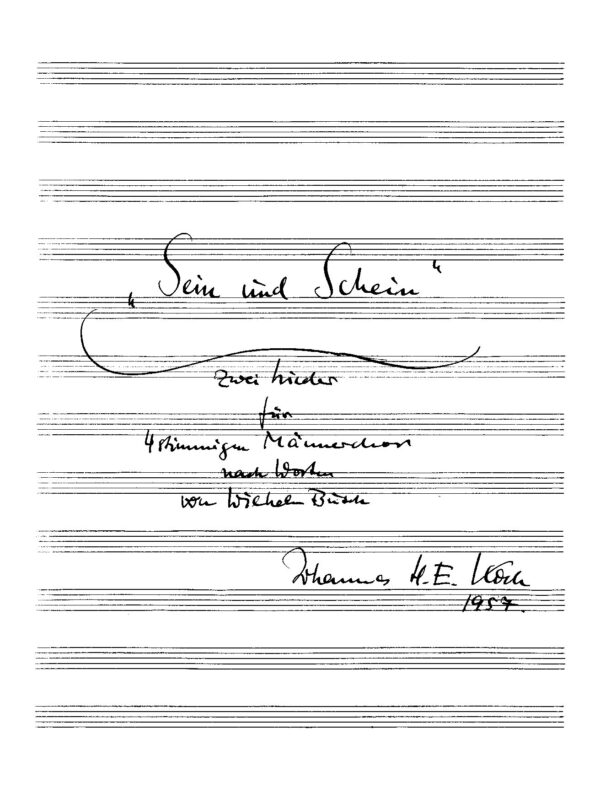 „Sein und Schein“
Zwei Lieder
für
4stimmigen Männerchor
nach Worten
von Wilhelm Busch
Johannes H.E. Koch
1957.